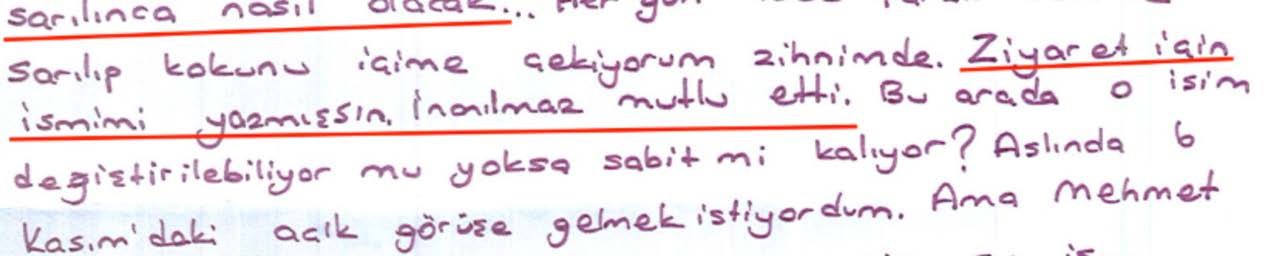 sarılınca nasıl olacak... Her gün
sarılıp kokunu içime çekiyorum zihnimde. Ziyaret için
ismimi yazmışsın. İnanılmaz mutlu etti. Bu arada o isim
değiştirilebiliyor mu yoksa sabit mi kalıyor? Aslında 6
Kasım'daki açık görüşe gelmek istiyordum. Ama Mehmet